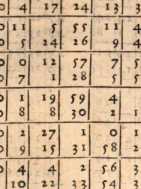 4 17 24 13 3
0 11 5 55 11 4
0 5 24 26 9 4
0 0 12 57 7 5
0 7 1 28 5 5
0 1 19 59 4
0 8 8 30 2 1
0 2 27 1 0 1
0 9 15 31 58 2
0 4 4 2 56 3
0 10 22 33 54 3